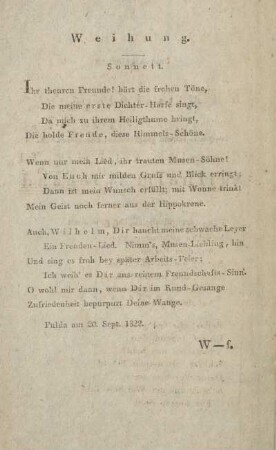 Weihung.
Sonnett.
Ihr theuren Freunde! hört die frohen Töne,
Die meine erste Dichter-Harfe singt,
Da mich zu ihrem Heiligthume bringt,
Die holde Freude, diese Himmels-Schöne.
Wenn nur mein Lied, ihr trauten Musen-Söhne!
Von Euch mir milden Gruß und Blick erringt;
Dann ist mein Wunsch erfüllt; mit Wonne trinkt
Mein Geist noch ferner aus der Hippokrene.
Auch, Wilhelm, Dir haucht meine schwache Leyer
Ein Freuden-Lied. Nimm's, Musen-Liebling, hin
Und sing es froh bey später Arbeits-Feier;
Ich weih' es Dir aus reinem Freundschafts-Sinn.
O wohl mir dann, wenn Dir im Rund-Gesange
Zufriedenheit bepurpurt Deine Wange.
Fulda am 20. Sept. 1822.
W—f.